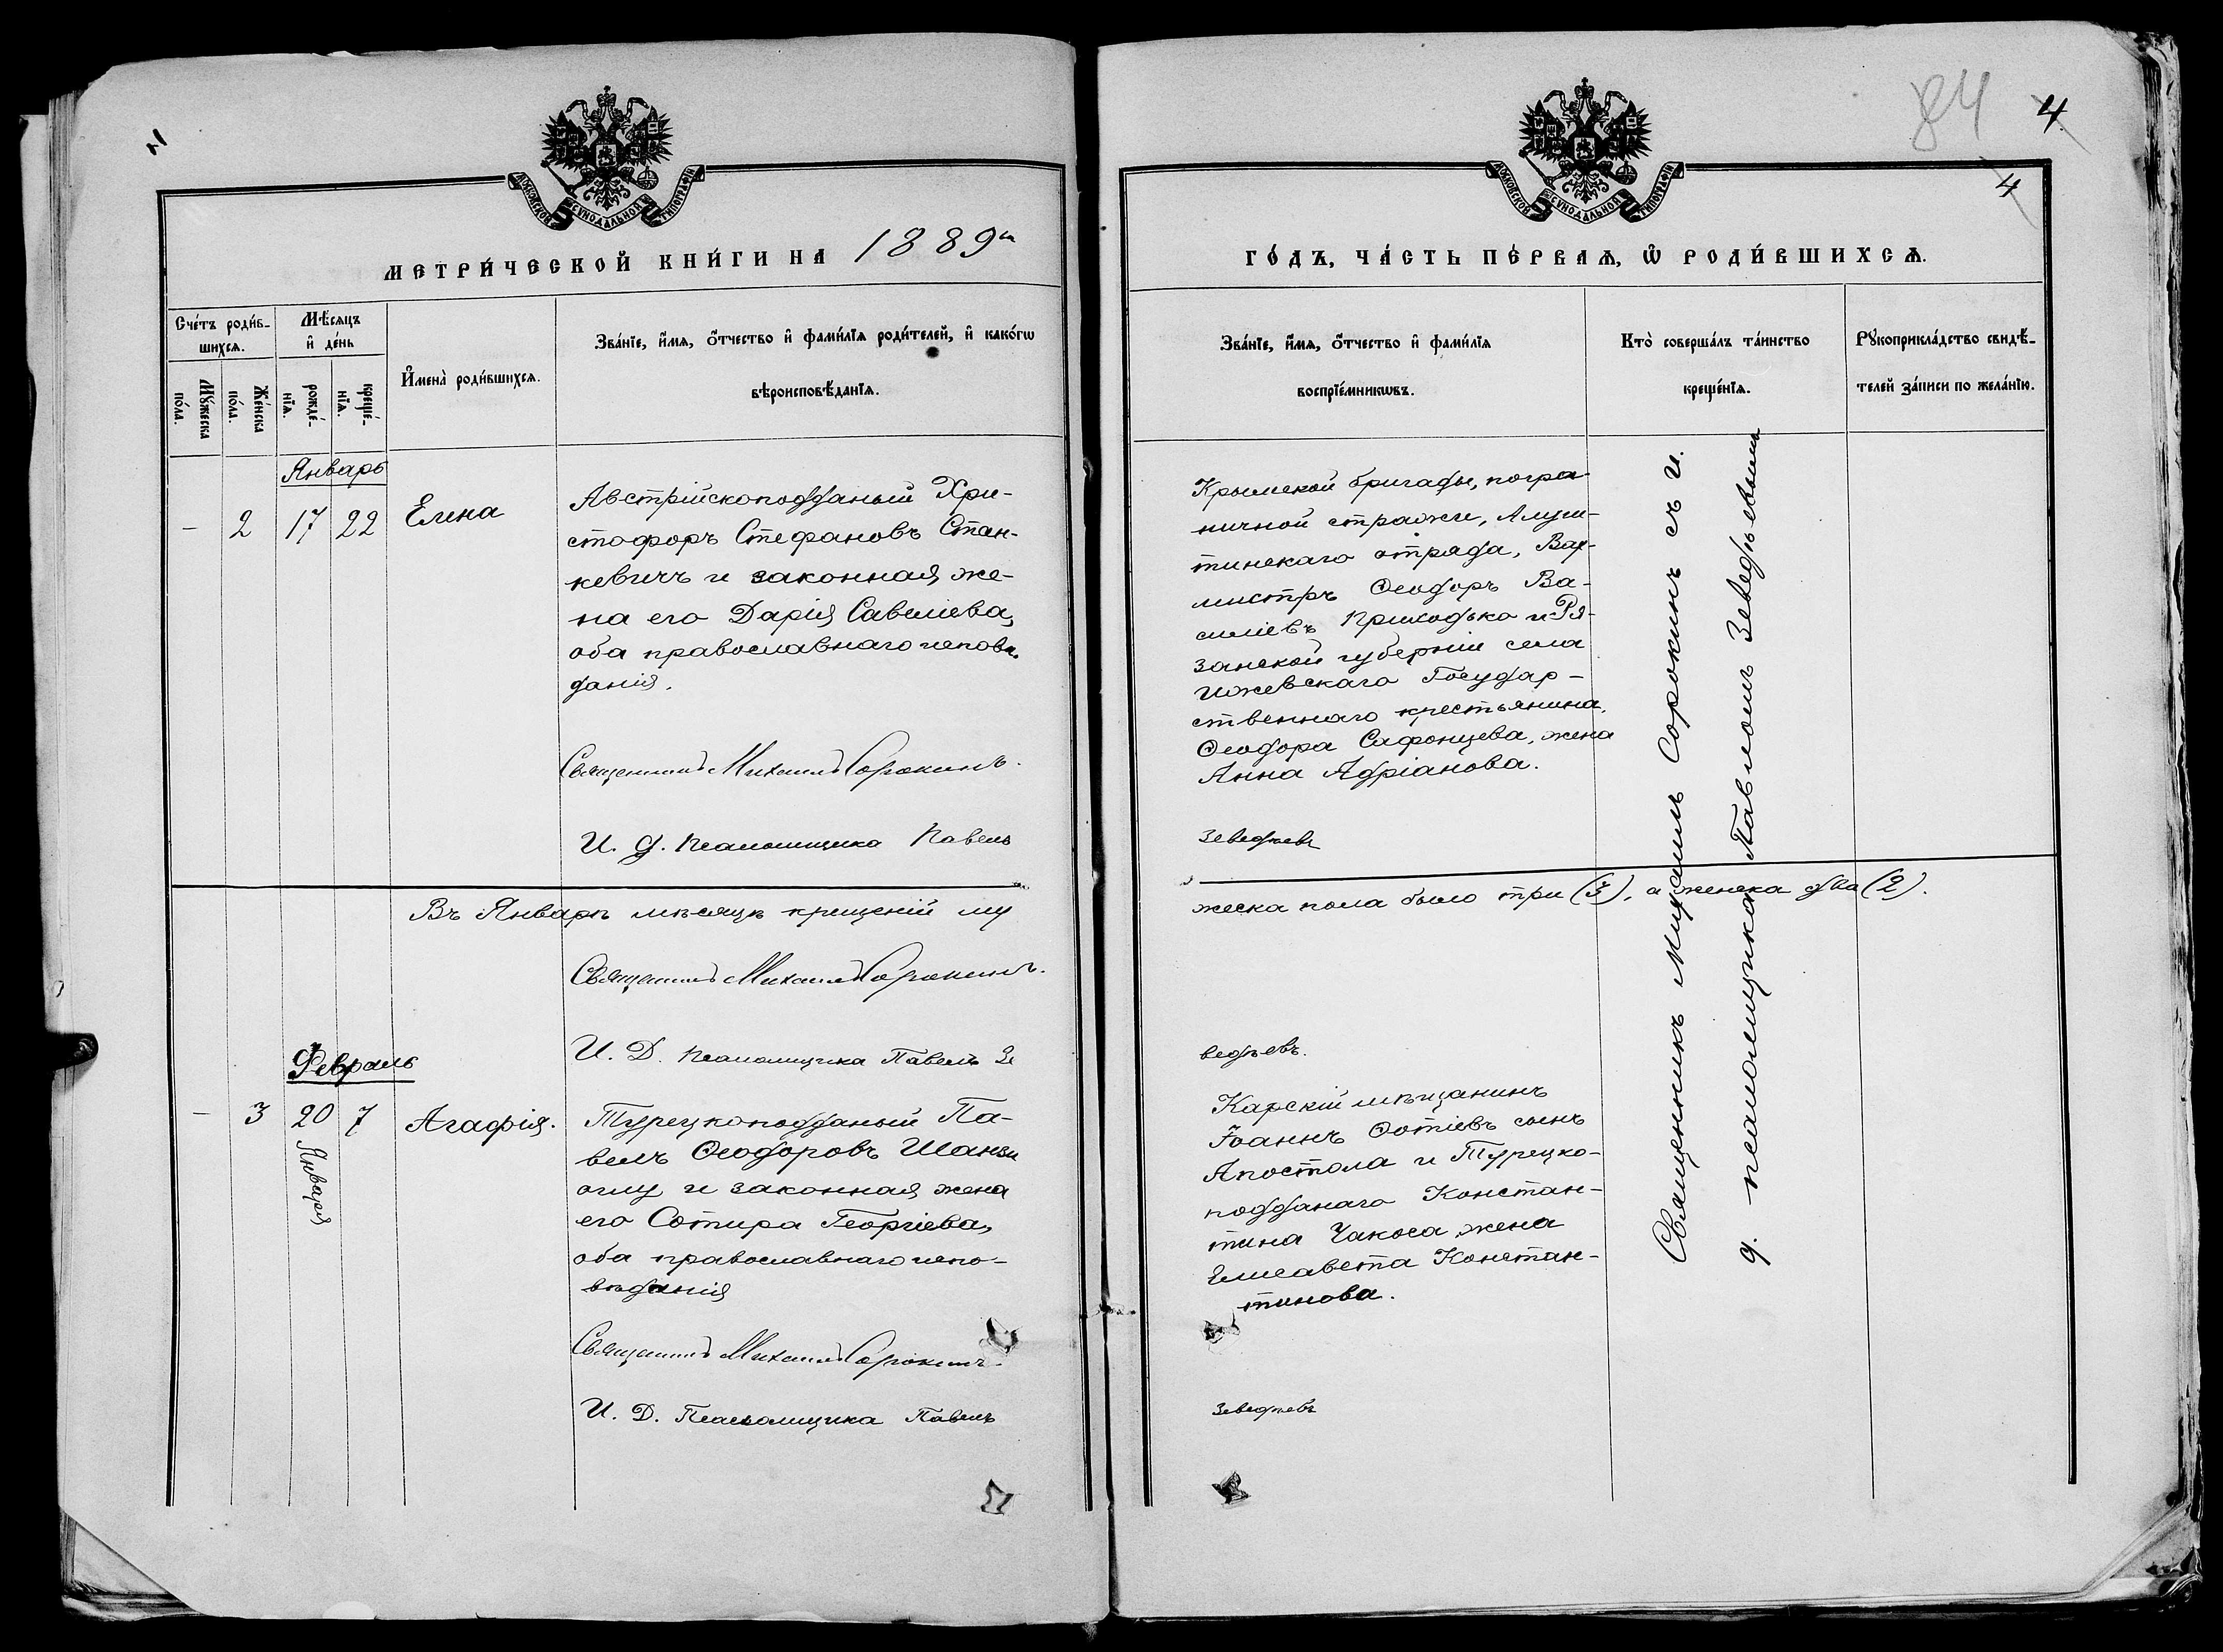 84 4
4
МОСКОВСКОЙ СУНОДАЛЬНОЙ ТИПОГРАФІИ
МЕТРИ́ЧЕСКОЙ КНИ́ГИ НА 1889й
Сче́тъ роди́в-
шихсѧ.
Мѣ́сѧцъ
и҆ де́нь
Мꙋ́жеска
по́ла.
Же́нска
по́ла.
рожде́-
нїѧ.
креще́-
нїѧ.
И҆мена̀ роди́вшихсѧ.
Зва́нїе, и҆́мѧ, ѻ҆́тчество и҆ фами́лїѧ роди́телей, и҆ како́гѡ
вѣроисповѣ́данїѧ.
Январь
- 2 17 22 Елена
Австрійскоподданый Хри-
стофоръ Стефановъ Стан-
кевичъ и законная же-
на его Дарія Савеліева,
оба православнаго исповѣ-
данія.
Священникъ Михаилъ Сорокинъ.
И. д. псаломщика Павелъ
Въ Январѣ мѣсяцѣ крещеній му
Священникъ Михаилъ Сорокинъ.
И. Д. псаломщика Павелъ Зе
Февраль
- 3 20 7 Агафія.
Января
Турецкоподданый Па-
велъ Ѳеодоровъ Шанзи
оглу и законная жена
его Сотира Георгіева,
оба православнаго испо-
вѣданія
Священникъ Михаилъ Сорокинъ.
И. Д. Псаломщика Павелъ
МОСКОВСКОЙ СУНОДАЛЬНОЙ ТИПОГРАФІИ
ГО́ДЪ, ЧА́СТЬ ПЕ́РВАѦ, Ѡ҆ РОДИ́ВШИХСѦ.
Зва́нїе, и҆́мѧ, ѻ҆́тчество и҆ фами́лїѧ
воспрїе́мникѡвъ.
Кто̀ соверша́лъ та́инство
креще́нїѧ.
Рꙋкоприкла́дство свидѣ́-
телей за́писи по жела́нїю.
Крымской бригады, погра-
ничной стражи, Алуш-
тинскаго отряда, Вах-
мистръ Ѳеодоръ Ва-
силіевъ Приходько и Ря-
занской губерніи села
Ижевскаго Государ-
ственнаго крестьянина,
Ѳеодора Сафонцева, жена
Анна Адріанова.
Зеведѣевъ
жеска пола было три (3), а женска два (2).
ведѣевъ.
Карскій мѣщанинъ
Іоаннъ Фотіевъ сынъ
Апостола и Турецко-
подданаго Констан-
тина Чакоса, жена
Елисавета Констан-
тинова.
Зеведѣевъ
Священникъ Михаилъ Сорокинъ съ и.
д. псаломщика Павломъ Зеведѣевымъ